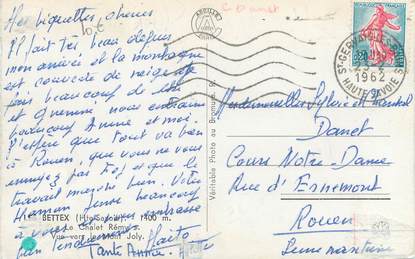 Mes biquettes chéries
Il fait très beau depuis
mon arrivée et la montagne
est couverte de neige
beaucoup de
et nous
beaucoup Annie et moi.
J'espère que tout va bien
à Rouen, que vous ne vous
ennuyez pas et que le
travail marche bien. Votre
Maman pense beaucoup
à vous et vous embrasse
bien tendrement
Tante Annie
BETTEX (Hte-Savoie) 1400 m.
Le Chalet Rémy's.
Vue vers le Mont Joly.
Véritable Photo au Bromure
ST GERVAIS-LES-BAINS
1962
HAUTE-SAVOIE
Mesdemoiselles Sylvie et
Danet
Cours Notre-Dame
Rue d'Ernemont
Rouen
Seine maritime